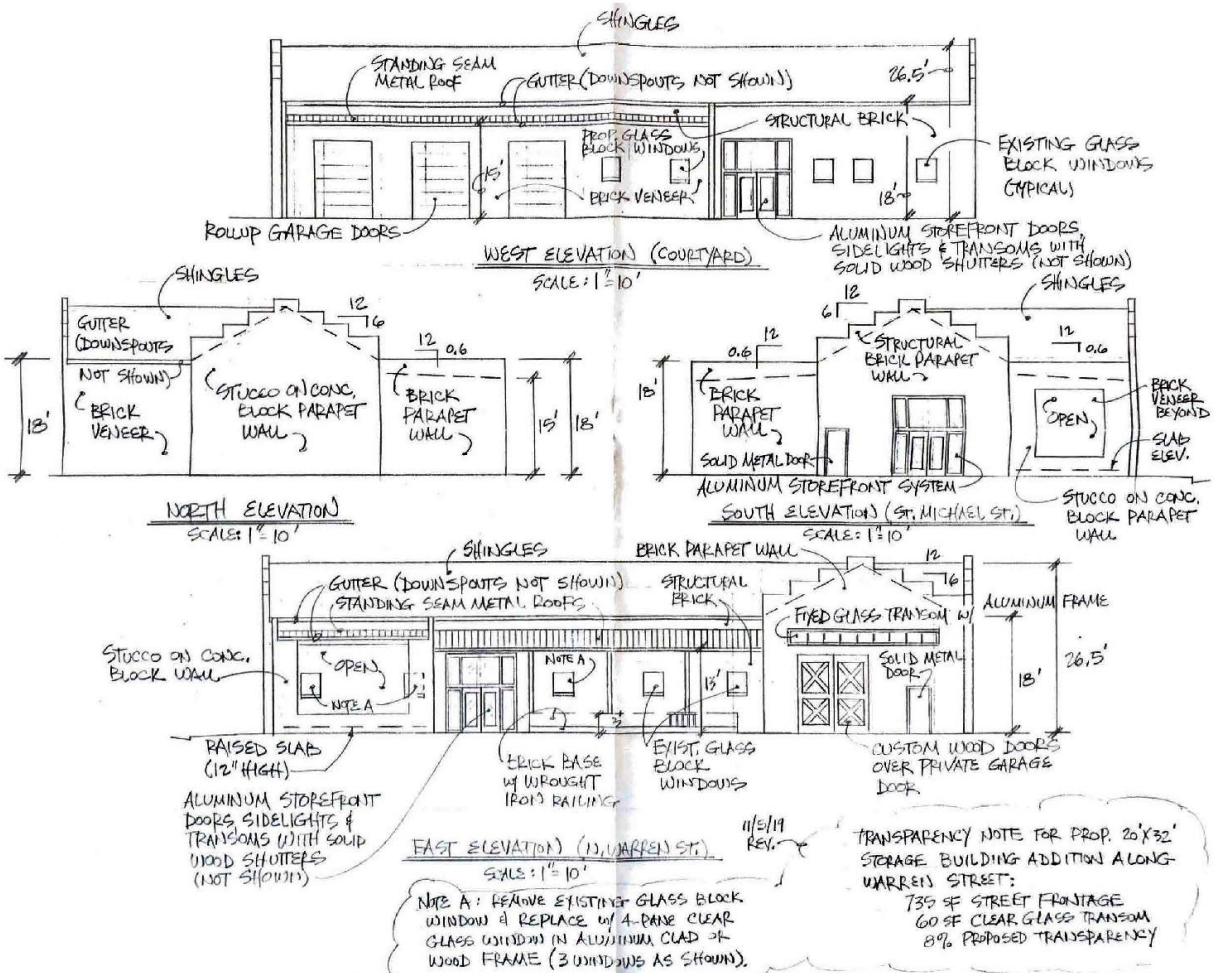 SHINGLES
STANDING SEAM
METAL ROOF
GUTTER (DOWNSPOUTS NOT SHOWN)
26.5'
STRUCTURAL BRICK
PROP. GLASS
BLOCK WINDOWS
EXISTING GLASS
BLOCK WINDOWS
(TYPICAL)
15'
BRICK VENEER
18'
ROLLUP GARAGE DOORS
ALUMINUM STOREFRONT DOORS,
SIDELIGHTS & TRANSOMS WITH
SOLID WOOD SHUTTERS (NOT SHOWN)
WEST ELEVATION (COURTYARD)
SCALE: 1"=10'
SHINGLES
12
6
GUTTER
(DOWNSPOUTS
NOT SHOWN)
12
0.6
18'
BRICK
VENEER
STUCCO ON CONC.
BLOCK PARAPET
WALL
BRICK
PARAPET
WALL
15'
18'
NORTH ELEVATION
SCALE: 1"=10'
12
6
SHINGLES
12
0.6
STRUCTURAL
BRICK PARAPET
WALL
12
0.6
18'
BRICK
PARAPET
WALL
OPEN
BRICK
VENEER
BEYOND
SLAB
ELEV.
SOLID METAL DOOR
ALUMINUM STOREFRONT SYSTEM
STUCCO ON CONC.
BLOCK PARAPET
WALL
SOUTH ELEVATION (ST. MICHAEL ST.)
SCALE: 1"=10'
SHINGLES
BRICK PARAPET WALL
12
6
GUTTER (DOWNSPOUTS NOT SHOWN)
STANDING SEAM METAL ROOFS
STRUCTURAL
BRICK
FIXED GLASS TRANSOM W/ ALUMINUM FRAME
STUCCO ON CONC.
BLOCK WALL
OPEN
NOTE A
NOTE A
13'
SOLID METAL
DOOR
18'
26.5'
3'
RAISED SLAB
(12" HIGH)
BRICK BASE
W/ WROUGHT
IRON RAILING
EXIST. GLASS
BLOCK
WINDOWS
CUSTOM WOOD DOORS
OVER PRIVATE GARAGE
DOOR
ALUMINUM STOREFRONT
DOORS SIDELIGHTS &
TRANSOMS WITH SOLID
WOOD SHUTTERS
(NOT SHOWN)
EAST ELEVATION (N. WARREN ST.)
SCALE: 1"=10'
11/5/19
REV.
NOTE A: REMOVE EXISTING GLASS BLOCK
WINDOW & REPLACE W/ 4-PANE CLEAR
GLASS WINDOW IN ALUMINUM CLAD OR
WOOD FRAME (3 WINDOWS AS SHOWN).
TRANSPARENCY NOTE FOR PROP. 20'X32'
STORAGE BUILDING ADDITION ALONG
WARREN STREET:
735 SF STREET FRONTAGE
60 SF CLEAR GLASS TRANSOM
8% PROPOSED TRANSPARENCY